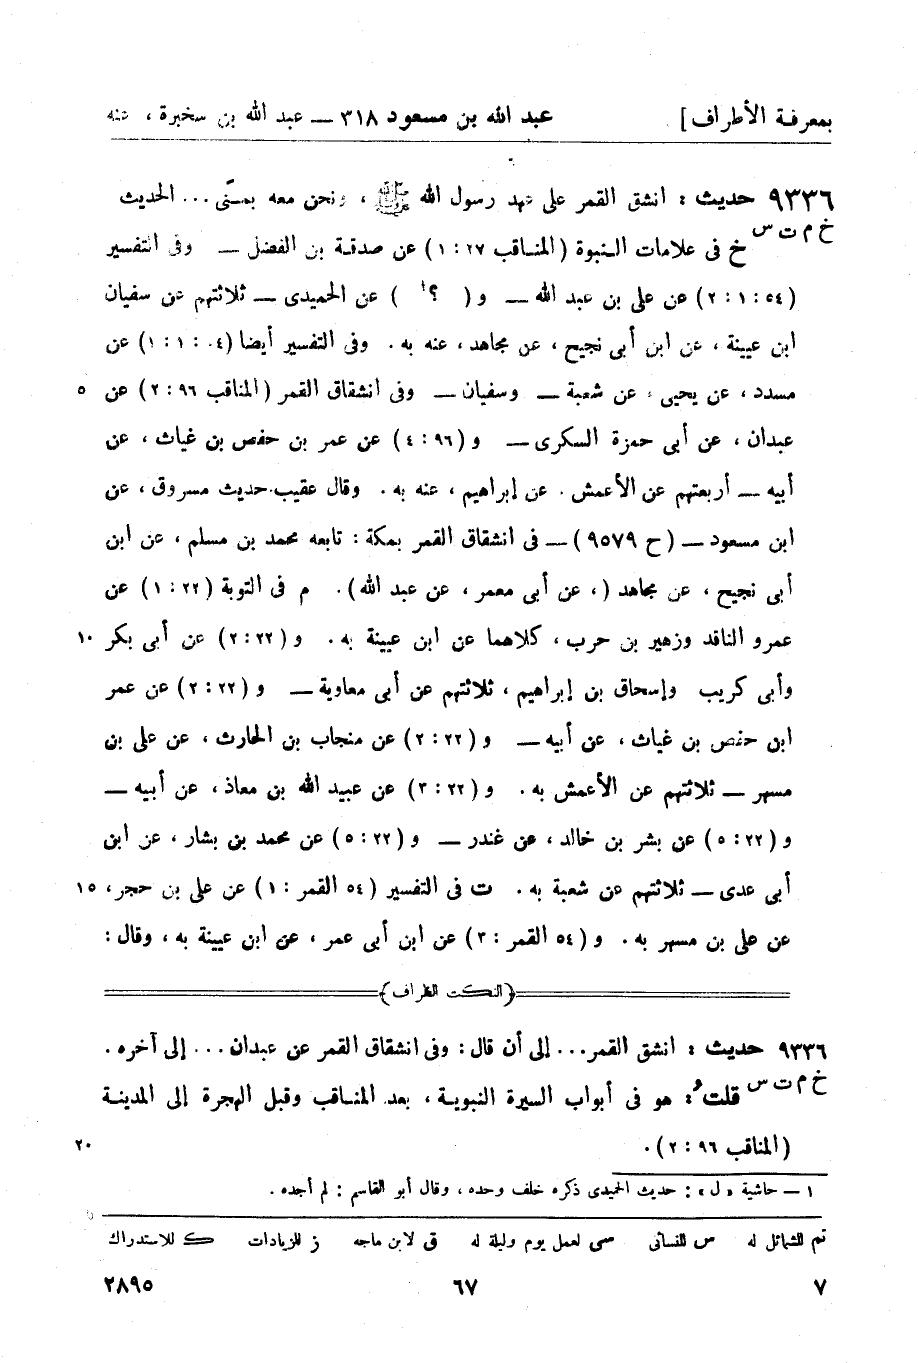 بمعرفة الأطراف] عبد الله بن مسعود ٣١٨ — عبد الله بن سخبرة ، عنه
٩٣٣٦ حديث : انشق القمر على عهد رسول الله ﷺ ، ونحن معه بمنًى... الحديث
خ م ت س خ فى علامات النبوة (المناقب ٢٧ : ١) عن صدقة بن الفضل — وفى التفسير
(٥٤ : ١ : ٢) عن على بن عبد الله — و( ؟¹ ) عن الحميدى — ثلاثتهم عن سفيان
ابن عيينة ، عن ابن أبى نجيح ، عن مجاهد ، عنه به . وفى التفسير أيضا (٥٤ : ١ : ١) عن
مسدد ، عن يحيى ، عن شعبة — وسفيان — وفى انشقاق القمر (المناقب ٩٦ : ٢) عن ٥
عبدان ، عن أبى حمزة السكرى — و (٩٦ : ٤) عن عمر بن حفص بن غياث ، عن
أبيه — أربعتهم عن الأعمش . عن إبراهيم ، عنه به . وقال عقيب حديث مسروق ، عن
ابن مسعود — (ح ٩٥٧٩) — فى انشقاق القمر بمكة : تابعه محمد بن مسلم ، عن ابن
أبى نجيح ، عن مجاهد (، عن أبى معمر ، عن عبد الله) . م فى التوبة (٢٢ : ١) عن
عمرو الناقد وزهير بن حرب ، كلاهما عن ابن عيينة به . و (٢٢ : ٢) عن أبى بكر ١٠
وأبى كريب وإسحاق بن إبراهيم ، ثلاثتهم عن أبى معاوية — و (٢٢ : ٢) عن عمر
ابن حفص بن غياث ، عن أبيه — و (٢٢ : ٢) عن منجاب بن الحارث ، عن على بن
مسهر — ثلاثتهم عن الأعمش به . و (٢٢ : ٣) عن عبيد الله بن معاذ ، عن أبيه —
و (٢٢ : ٥) عن بشر بن خالد ، عن غندر — و (٢٢ : ٥) عن محمد بن بشار ، عن ابن
أبى عدى — ثلاثتهم عن شعبة به . ت فى التفسير (٥٤ القمر : ١) عن على بن حجر ، ١٥
عن على بن مسهر به . و (٥٤ القمر : ٣) عن ابن أبى عمر ، عن ابن عيينة به ، وقال :
﴿النكت الظراف﴾
٩٣٣٦ حديث : انشق القمر... إلى أن قال : وفى انشقاق القمر عن عبدان... إلى آخره .
خ م ت س قلتُ : هو فى أبواب السيرة النبوية ، بعد المناقب وقبل الهجرة إلى المدينة
(المناقب ٩٦ : ٢) . ٢٠
١ — حاشية «ل» : حديث الحميدى ذكره خلف وحده ، وقال أبو القاسم : لم أجده .
تم للشمائل له س للنسائى سى لعمل يوم وليلة له ق لابن ماجه ز للزيادات ك للاستدراك
٧ ٦٧ ٢٨٩٥